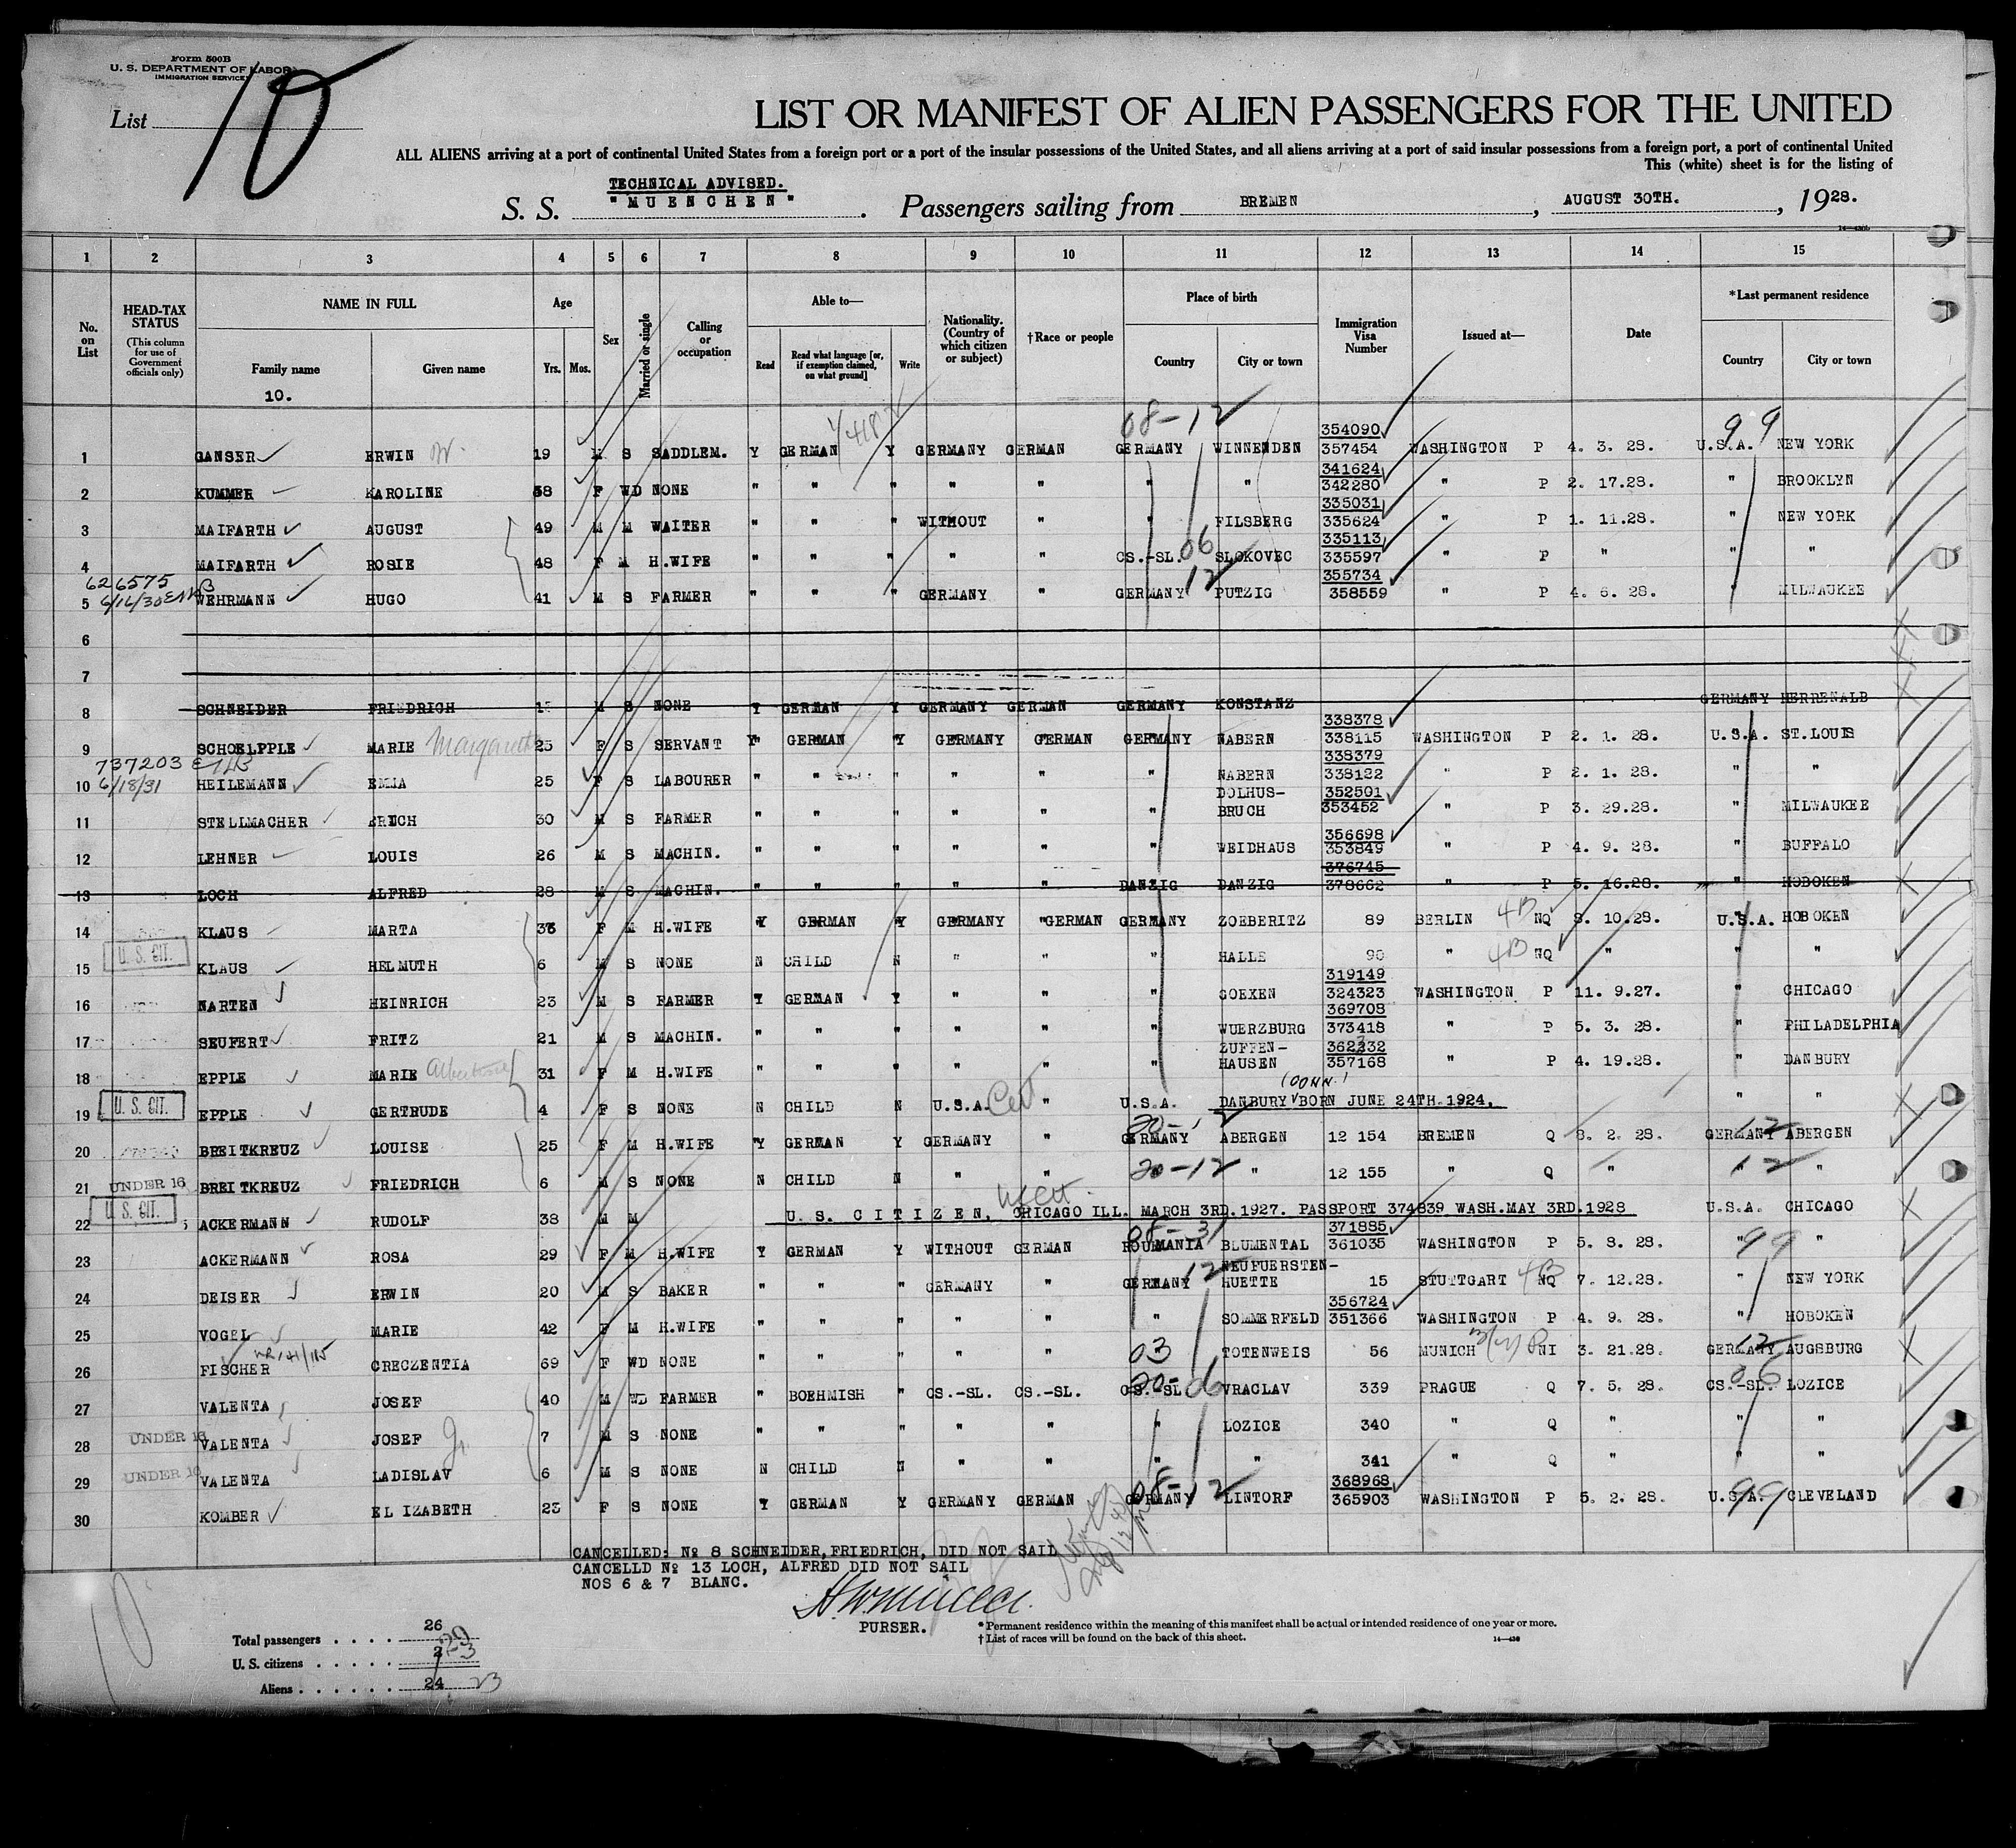 Form 500B
U. S. DEPARTMENT OF LABOR
IMMIGRATION SERVICE
List 10
LIST OR MANIFEST OF ALIEN PASSENGERS FOR THE UNITED
ALL ALIENS arriving at a port of continental United States from a foreign port or a port of the insular possessions of the United States, and all aliens arriving at a port of said insular possessions from a foreign port, a port of continental United
This (white) sheet is for the listing of
TECHNICAL ADVISED.
S. S. "MUENCHEN". Passengers sailing from BREMEN, AUGUST 30TH., 1928.
14—430b
1 2 3 4 5 6 7 8 9 10 11 12 13 14 15
No. on List
HEAD-TAX STATUS
(This column for use of Government officials only)
NAME IN FULL
Family name
Given name
10.
Age
Yrs. Mos.
Sex
Married or single
Calling or occupation
Able to—
Read
Read what language [or, if exemption claimed, on what ground]
Write
Nationality. (Country of which citizen or subject)
†Race or people
Place of birth
Country
City or town
Immigration Visa Number
Issued at—
Date
*Last permanent residence
Country
City or town
08-12 99
354090
1 GANSER ERWIN 19 M S SADDLEM. Y GERMAN Y GERMANY GERMAN GERMANY WINNENDEN 357454 WASHINGTON P 4. 3. 28. U.S.A. NEW YORK
341624
2 KUMMER KAROLINE 58 F WD NONE " " " " " " " 342280 " P 2. 17.28. " BROOKLYN
335031
3 MAIFARTH AUGUST 49 M M WAITER " " " WITHOUT " " FILSBERG 335624 " P 1. 11.28. " NEW YORK
335113
4 MAIFARTH ROSIE 48 F M H.WIFE " " " " " CS.-SL. 06 SLOKOVEC 335597 " P " " "
626575 355734
5 6/16/30 WEHRMANN HUGO 41 M S FARMER " " " GERMANY " GERMANY 12 PUTZIG 358559 " P 4. 6. 28. " MILWAUKEE
6
7
8 SCHNEIDER FRIEDRICH M S NONE Y GERMAN Y GERMANY GERMAN GERMANY KONSTANZ GERMANY HERRENALB
338378
9 SCHOELPPLE MARIE Margareth 23 F S SERVANT Y GERMAN Y GERMANY GERMAN GERMANY NABERN 338115 WASHINGTON P 2. 1. 28. U.S.A. ST.LOUIS
737203 338379
10 6/18/31 HEILEMANN EMMA 25 F S LABOURER " " " " " " NABERN 338122 " P 2. 1. 28. " "
DOLHUS- 352501
11 STELLMACHER ERICH 30 M S FARMER " " " " " " BRUCH 353452 " P 3. 29.28. " MILWAUKEE
356698
12 LEHNER LOUIS 26 M S MACHIN. " " " " " " WEIDHAUS 353849 " P 4. 9. 28. " BUFFALO
376745
13 LOCH ALFRED 28 M S MACHIN. " " " " " DANZIG DANZIG 378662 " P 5. 16.28. " HOBOKEN
14 KLAUS MARTA 36 F M H.WIFE Y GERMAN Y GERMANY "GERMAN GERMANY ZOEBERITZ 89 BERLIN 4B NQ 8. 10.28. U.S.A. HOBOKEN
U. S. CIT.
15 KLAUS HELMUTH 6 M S NONE N CHILD N " " " HALLE 90 " 4B NQ " " "
319149
16 NARTEN HEINRICH 23 M S FARMER Y GERMAN Y " " " GOEXEN 324323 WASHINGTON P 11. 9.27. " CHICAGO
369708
17 SEUFERT FRITZ 21 M S MACHIN. " " " " " " WUERZBURG 373418 " P 5. 3. 28. " PHILADELPHIA
ZUFFEN- 362232
18 EPPLE MARIE 31 F M H.WIFE " " " " " " HAUSEN 357168 " P 4. 19.28. " DANBURY
(CONN.)
19 U. S. CIT. EPPLE GERTRUDE 4 F S NONE N CHILD N U.S.A. Cert " U.S.A. DANBURY BORN JUNE 24TH.1924. " "
20-12 12
20 BREITKREUZ LOUISE 25 F M H.WIFE Y GERMAN Y GERMANY " GERMANY ABERGEN 12 154 BREMEN Q 8. 2. 28. GERMANY ABERGEN
21 UNDER 16 BREITKREUZ FRIEDRICH 6 M S NONE N CHILD N " " 20-12 " 12 155 " Q " 12 " "
22 U. S. CIT. ACKERMANN RUDOLF 38 M M U.S. CITIZEN, CHICAGO ILL. MARCH 3RD.1927. PASSPORT 374839 WASH.MAY 3RD.1928 U.S.A. CHICAGO
08-31 371885
23 ACKERMANN ROSA 29 F M H.WIFE Y GERMAN Y WITHOUT GERMAN ROUMANIA BLUMENTAL 361035 WASHINGTON P 5. 8. 28. " 99 "
NEUFUERSTEN-
24 DEISER ERWIN 20 M S BAKER " " " GERMANY " GERMANY 12 HUETTE 15 STUTTGART 4B NQ 7. 12.28. " NEW YORK
356724
25 VOGEL MARIE 42 F M H.WIFE " " " " " " SOMMERFELD 351366 WASHINGTON P 4. 9. 28. " HOBOKEN
26 FISCHER CRECZENTIA 69 F WD NONE " " " " " 03 TOTENWEIS 56 MUNICH NI 3. 21.28. GERMANY 12 AUGSBURG
27 VALENTA JOSEF 40 M WD FARMER " BOEHMISH " CS.-SL. CS.-SL. CS.-SL 20-06 VRACLAV 339 PRAGUE Q 7. 5. 28. CS.-SL. 06 LOZICE
28 UNDER 16 VALENTA JOSEF Jr 7 M S NONE " " " " " " LOZICE 340 " Q " " "
29 UNDER 16 VALENTA LADISLAV 6 M S NONE N CHILD N " " " " 341 " Q " " "
08-12 368968
30 KOMBER ELIZABETH 23 F S NONE Y GERMAN Y GERMANY GERMAN GERMANY LINTORF 365903 WASHINGTON P 5. 2. 28. U.S.A. 99 CLEVELAND
CANCELLED: No 8 SCHNEIDER, FRIEDRICH, DID NOT SAIL
CANCELLD No 13 LOCH, ALFRED DID NOT SAIL
NOS 6 & 7 BLANC.
PURSER.
*Permanent residence within the meaning of this manifest shall be actual or intended residence of one year or more.
†List of races will be found on the back of this sheet.
14—430
Total passengers .... 26
U. S. citizens ..... 2 3
Aliens ...... 24 23
10